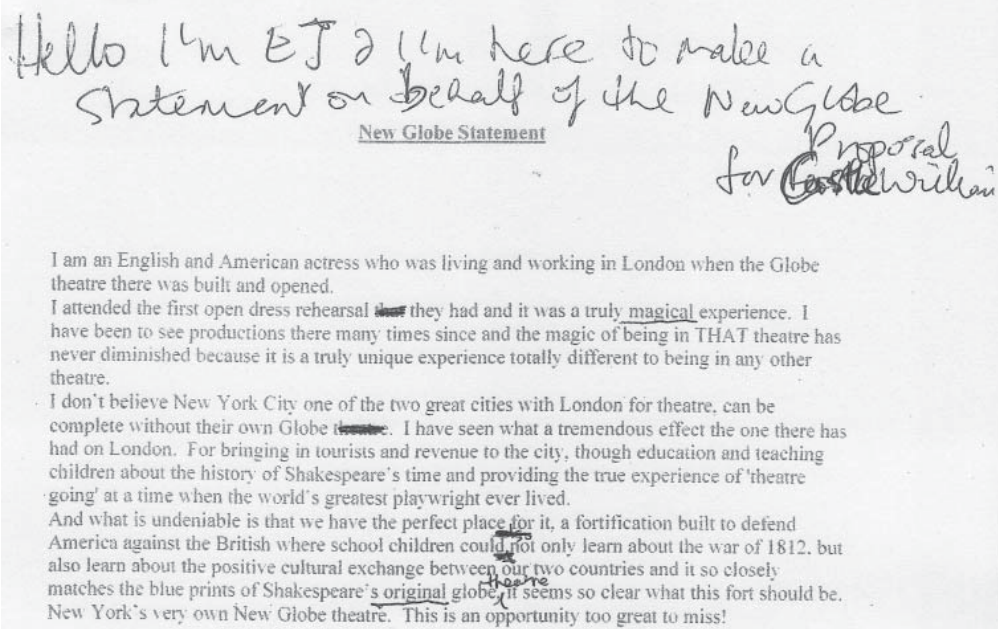 Hello I'm EJ & I'm here to make a
statement on behalf of the New Globe
New Globe Statement
Proposal
for Castle William
I am an English and American actress who was living and working in London when the Globe
theatre there was built and opened.
I attended the first open dress rehearsal that they had and it was a truly magical experience. I
have been to see productions there many times since and the magic of being in THAT theatre has
never diminished because it is a truly unique experience totally different to being in any other
theatre.
I don't believe New York City one of the two great cities with London for theatre, can be
complete without their own Globe theatre. I have seen what a tremendous effect the one there has
had on London. For bringing in tourists and revenue to the city, though education and teaching
children about the history of Shakespeare's time and providing the true experience of 'theatre
going' at a time when the world's greatest playwright ever lived.
And what is undeniable is that we have the perfect place for it, a fortification built to defend
America against the British where school children could not only learn about the war of 1812. but
also learn about the positive cultural exchange between our two countries and it so closely
theatre
matches the blue prints of Shakespeare's original globe, it seems so clear what this fort should be.
New York's very own New Globe theatre. This is an opportunity too great to miss!